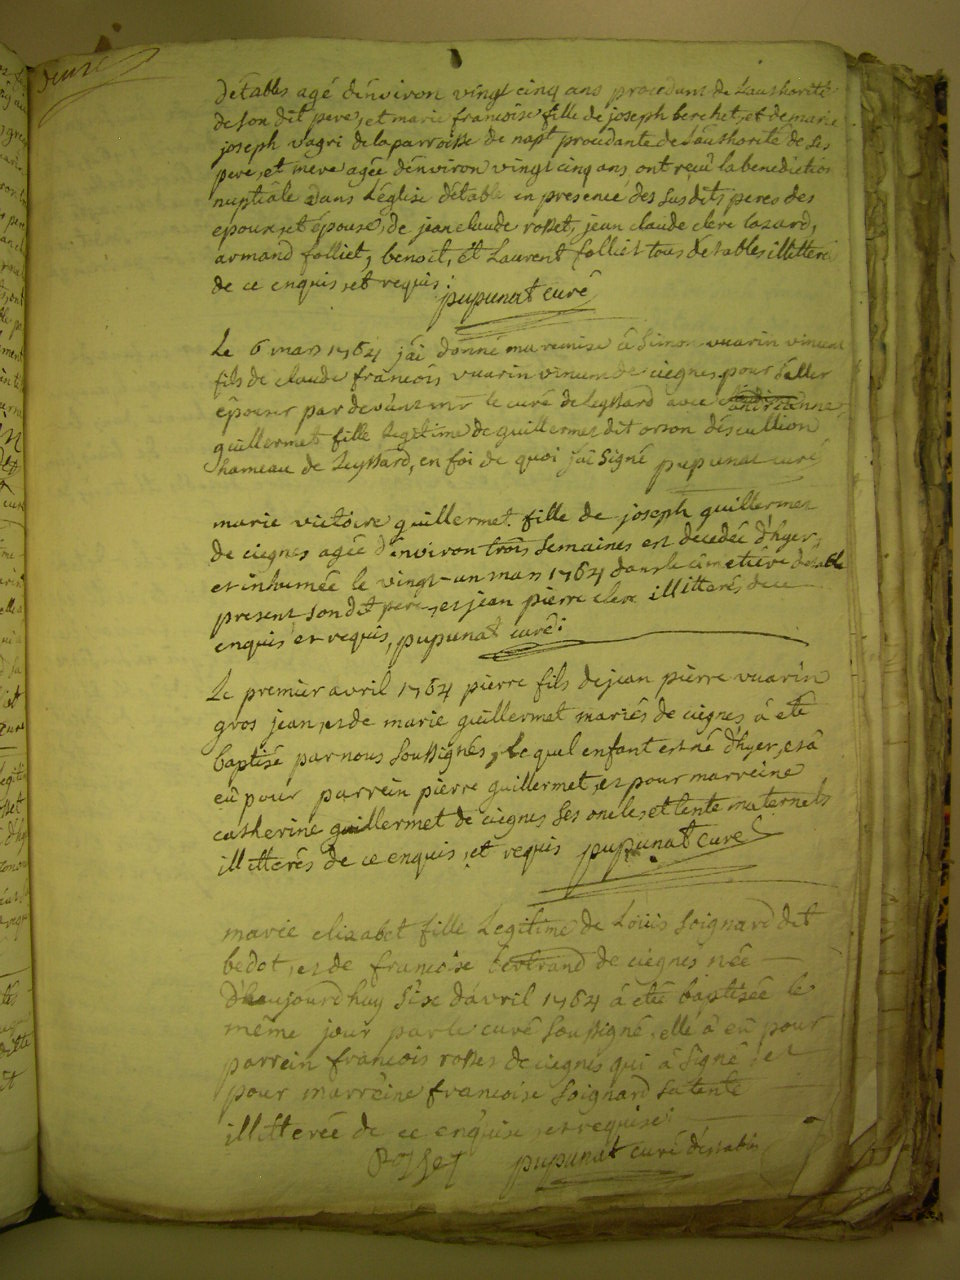 détables agé d'énviron vingt cinq ans procedant de L'authorité
de son dit pere, et marie francoise fille de joseph berchet, et de marie
joseph vagri de la parroisse de napt procedante de L'authorité de ses
pere, et mere agée d'énviron vingt cinq ans ont reçu la benediction
nuptiale dans L'église d'étable en presence des susdits peres des
epoux, et épouse, de jean claude rosset, jean claude clerc lazard,
armand folliet, benoit, et Laurent folliet tous d'etables illitteré
de ce enquis, et requis: pupunat curé
Le 6 mars 1764 j'ai donné ma remise à Simon vuarin vincent
fils de claude francois vuarin vincent de ciegnes pour s'aller
épouser par devant mr le curé de Leyssard avec
guillermet fille legitime de guillermet dit orson descullion
hameau de Leyssard, en foi de quoi j'ai signé pupunat curé
marie victoire guillermet fille de joseph guillermet
de ciegnes agée d'énviron trois semaines est décedée d'hyer,
et inhumée le vingt-un mars 1764 dans le cimetiére d'etable
present son dit pere, et jean pierre clerc illitterés de ce
enquis et requis, pupunat curé:
Le premier avril 1764 pierre fils de jean pierre vuarin
gros jean, et de marie guillermet mariés de ciegnes à eté
baptisé par nous soussignés, Lequel enfant est né d'hyer, et à
eû pour parrein pierre guillermet, et pour marreine
catherine guillermet de ciegnes ses oncle, et tente maternels
illitterés de ce enquis, et requis pupunat curé
marie elizabet fille Legitime de Loüis Soignard dit
bedot, et de francoise bertrand de ciegnes née
d'haujourdhuy sixe d'avril 1764 à eté baptisée le
même jour par le curé soussigné, elle à eû pour
parrein francois rosset de ciegnes qui à signé et
pour marreine francoise Soignard sa tente
illitterée de ce enquise, et requise:
Rosset pupunat curé d'estables